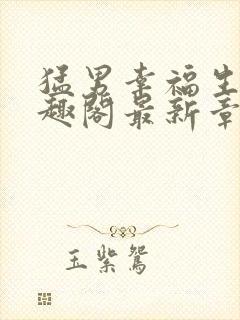 猛男幸福生
趣阁最新章
玉紫鸳